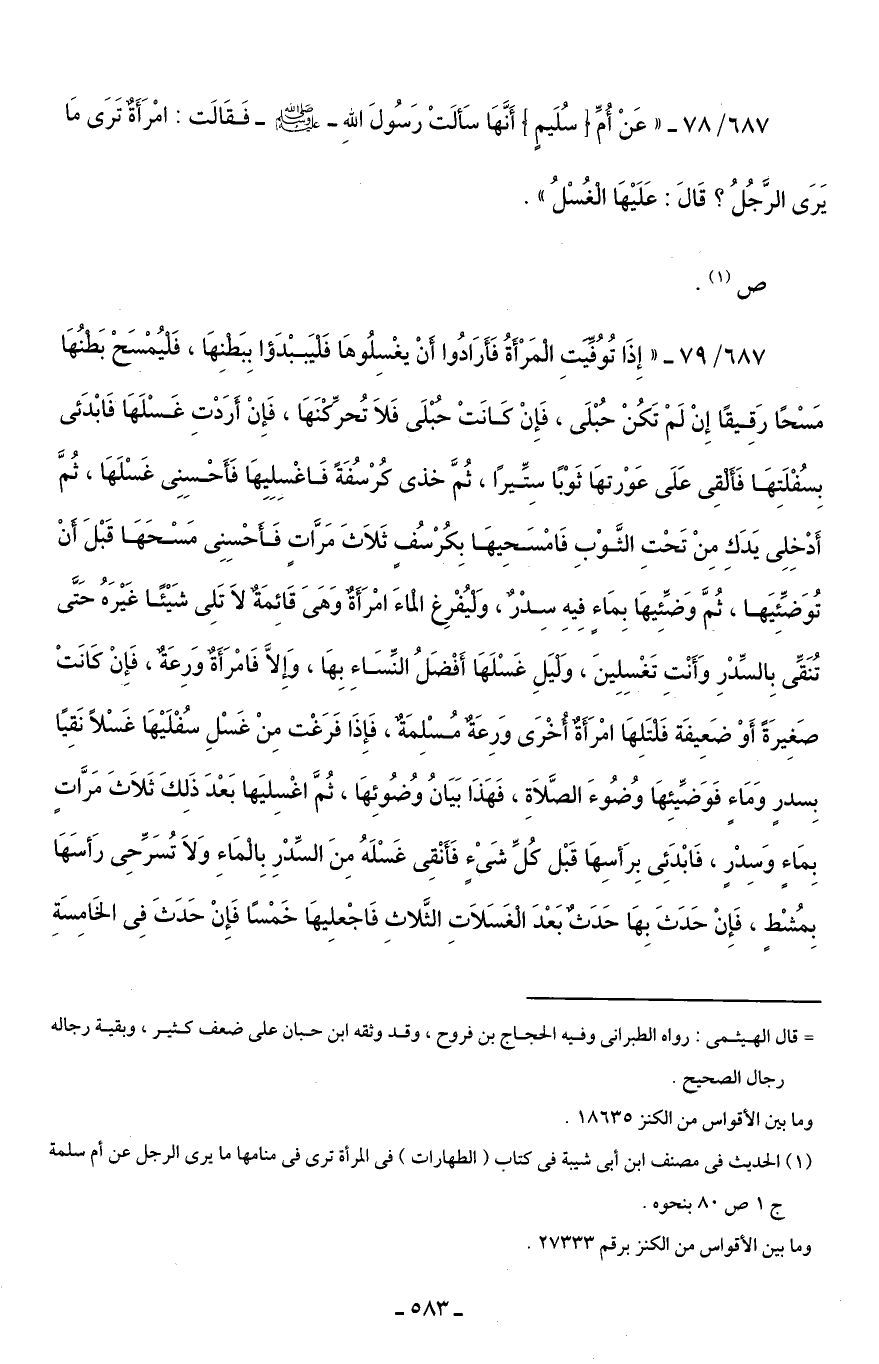 ٦٨٧/ ٧٨ ـ « عَنْ أُمِّ { سُلَيمٍ } أَنَّهَا سَألَتْ رَسُولَ اللهِ ـ ﷺ ـ فَقَالَت : امْرَأَةٌ تَرَى مَا
يَرَى الرَّجُلُ ؟ قَالَ : عَلَيْهَا الْغُسْلُ » .
ص (١) .
٦٨٧/ ٧٩ ـ « إِذَا تُوُفِّيَت الْمَرْأَةُ فَأَرَادُوا أَنْ يغْسِلُوهَا فَلْيَبْدَؤا بِبَطْنِهَا ، فَلْيُمْسَحْ بَطْنُهَا
مَسْحًا رَقِيقًا إِنْ لَمْ تَكُنْ حُبْلَى ، فَإِنْ كَانَتْ حُبْلَى فَلاَ تُحرِّكنَهَا ، فَإِنْ أَرَدْتِ غَسْلَهَا فَابْدَئى
بِسُفْلَتِهَا فَأَلْقِى عَلَى عَوْرتهَا ثَوْبًا ستِّيرًا ، ثُمَّ خذى كُرْسُفَةً فَاغْسِلِيهَا فَأَحْسِنِى غَسْلَهَا ، ثُمَّ
أَدْخلِى يَدَكِ مِنْ تَحْتِ الثَّوْبِ فَامْسَحيهَا بِكُرْسُفٍ ثَلاَثَ مَرَّاتٍ فَأَحْسِنِى مَسْحَهَا قَبْلَ أَنْ
تُوَضِّئِيَهَا ، ثُمَّ وَضِّئِيهَا بِمَاءٍ فِيهِ سِدْرٌ ، وَلْيُفْرِغِ الْماءَ امْرَأَةٌ وَهَىَ قَائِمَةٌ لاَ تَلِى شَيْئًا غَيْرَهُ حَتَّى
تُنَقَّى بِالسِّدْرِ وَأَنْتِ تَغْسِلِينَ ، وَلْيَلِ غَسْلَهَا أَفْضَلُ النِّسَاءِ بِهَا ، وَإلاَّ فَامْرأَةٌ وَرِعَةٌ ، فَإِنْ كَانَتْ
صَغِيرَةً أَوْ ضَعِيفَة فَلْتَلِهَا امْرأَةٌ أُخْرَى وَرِعَةٌ مُسْلِمَةٌ ، فَإِذَا فَرَغْتِ مِنْ غَسْلِ سُفْلَيْهَا غَسْلاً نَقِيًا
بِسدرٍ وَمَاءٍ فَوَضِّيئِهَا وُضُوءَ الصَّلاَةِ ، فَهَذَا بَيَانُ وُضُوئِهَا ، ثُمَّ اغْسِلِيَها بَعْدَ ذَلكَ ثَلاَثَ مَرَّاتٍ
بِمَاءٍ وَسِدْرٍ ، فَابْدَئِى بِرَأسِهَا قَبْلَ كُلِّ شَىْءٍ فَأَنْقِى غَسْلَهُ مِنَ السِّدْرِ بِالْمَاءِ وَلاَ تُسَرِّحِى رَأسَهَا
بِمُشْطٍ ، فَإِنْ حَدَثَ بِهَا حَدَثٌ بَعْدَ الْغَسَلاَتِ الثَّلاَثِ فَاجْعلِيهَا خَمْسًا فَإِنْ حَدَثَ فِى الْخَامِسَةِ
= قال الهيثمى : رواه الطبرانى وفيه الحجاج بن فروح ، وقد وثقه ابن حبان على ضعف كثير ، وبقية رجاله
رجال الصحيح .
وما بين الأقواس من الكنز ١٨٦٣٥ .
(١) الحديث فى مصنف ابن أبى شيبة فى كتاب ( الطهارات ) فى المرأة ترى فى منامها ما يرى الرجل عن أم سلمة
ج ١ ص ٨٠ بنحوه .
وما بين الأقواس من الكنز برقم ٢٧٣٣٣ .
ـ ٥٨٣ ـ